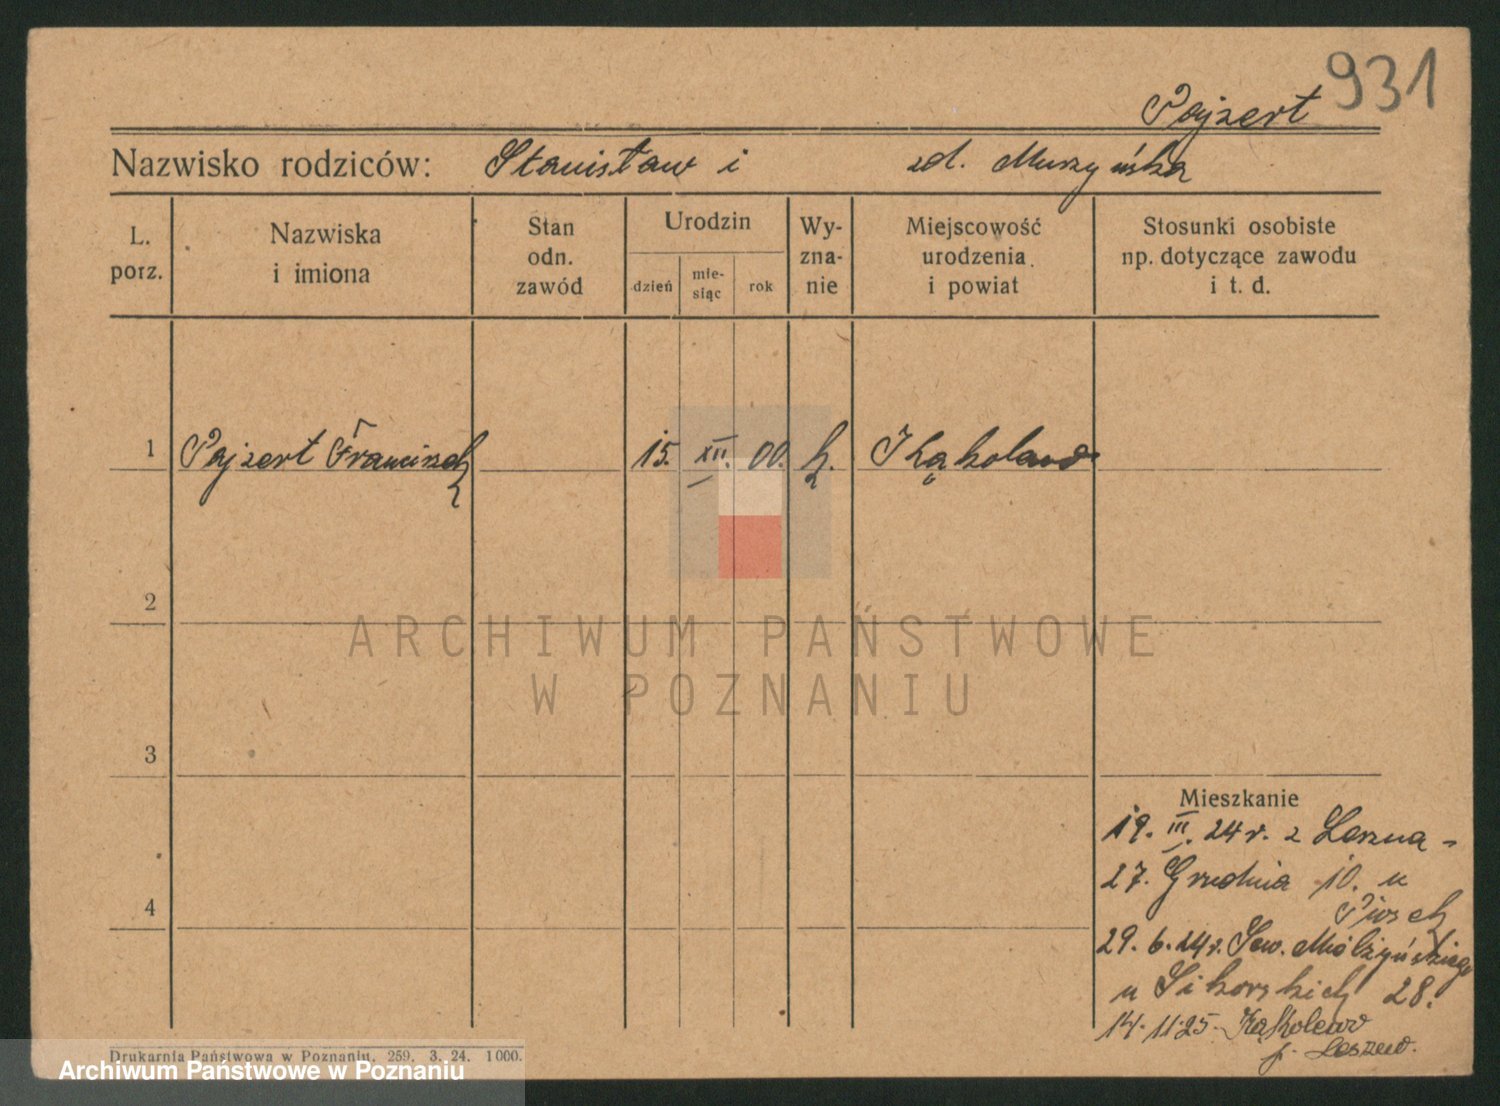 931
Pajzert
Nazwisko rodziców: Stanisław i zd. Muszyńska
L. porz.
Nazwiska i imiona
Stan odn. zawód
Urodzin
dzień
mie-
siąc
rok
Wy-
zna-
nie
Miejscowość urodzenia i powiat
Stosunki osobiste np. dotyczące zawodu i t. d.
1 Pajzert Franciszek 15. XII. 00. k. Kąkolewo
2
3
4
ARCHIWUM PAŃSTWOWE
W POZNANIU
Mieszkanie
19. III. 24 r. z Leszna -
27. Grudnia 10. u
29. 6. 24 r. Sew. Mielżyńskiego
u Sikorskich 28.
14. 11. 25. Kąkolewo
Drukarnia Państwowa w Poznaniu. 259. 3. 24. 1000.
Archiwum Państwowe w Poznaniu